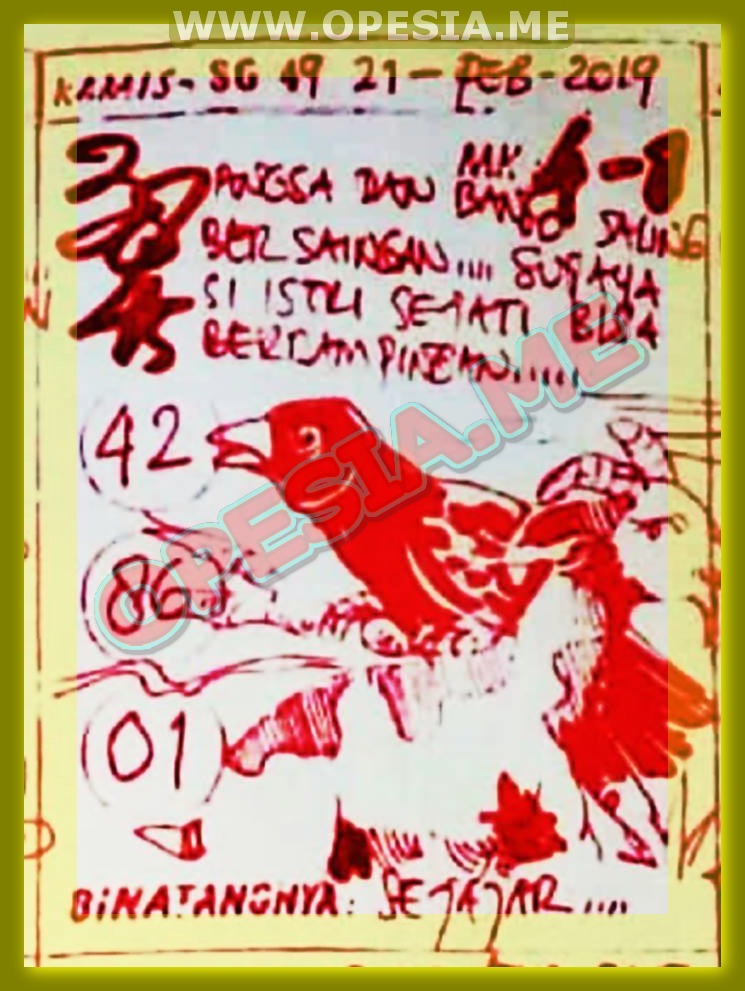 WWW.OPESIA.ME
KAMIS - SG 49 21 - FEB - 2019
ANGSA DAN BANGO SALING
BERSAINGAN.... SUPAYA
SI ISTRI SEJATI BISA
BERDAMPINGAN.....
42
86
01
OPESIA.ME
BINATANGNYA: SEJAJAR....